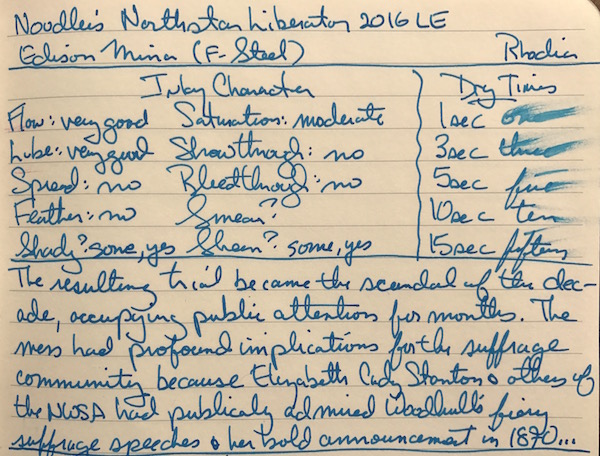 Noodler's Northstar Liberator 2016 LE
Edison Mina (F-Steel) Rhodia
Inky Character Dry Times
Flow: very good Saturation: moderate 1sec one
Lube: very good Showthrough: no 3sec three
Spread: no Bleedthrough: no 5sec five
Feather: no Smear? 10sec ten
Shady? some, yes Sheen? some, yes 15sec fifteen
The resulting trial became the scandal of the dec-
ade, occupying public attention for months. The
mess had profound implications for the suffrage
community because Elizabeth Cady Stanton & others of
the NWSA had publicaly admired Woodhull's fiery
suffrage speeches & her bold announcement in 1870...